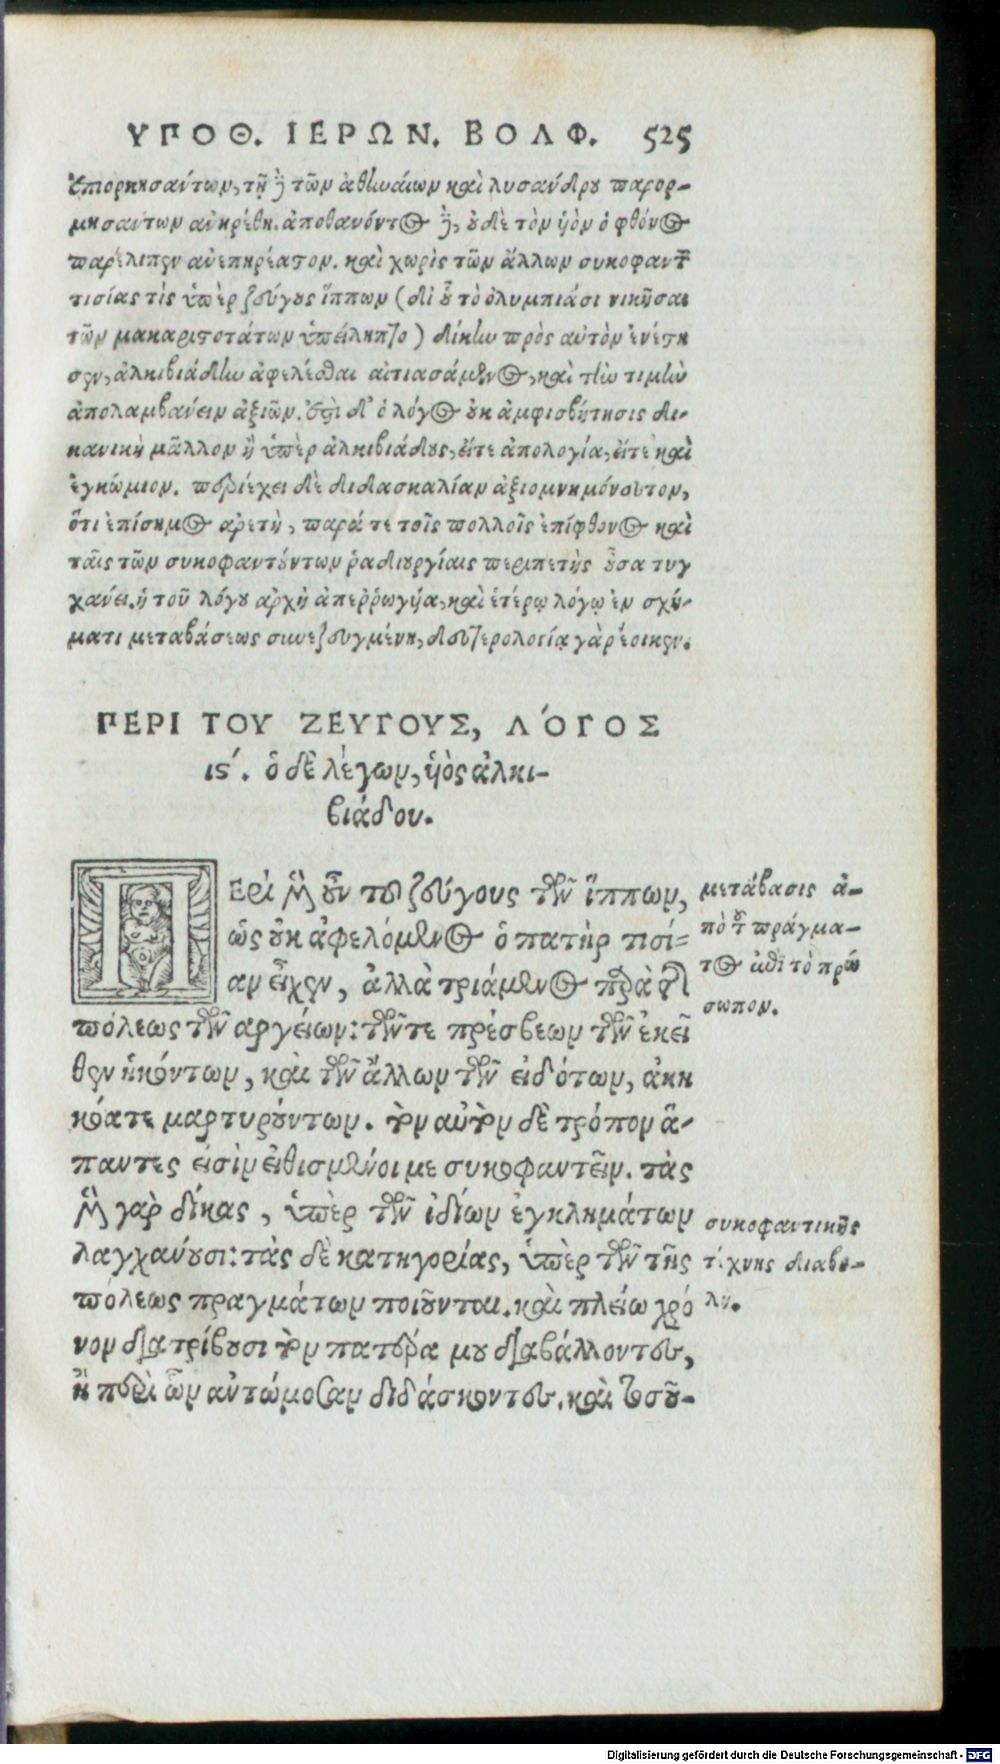 ΥΠΟΘ. ΙΕΡΩΝ. ΒΟΛΦ. 525
ἐπιορκησάντων, τῇ δὲ τῶν ἀθηναίων καὶ λυσάνδρου παρορ-
μησάντων ἀνῃρέθη. ἀποθανόντος δὲ, οὐδὲ τὸν ὑὸν ὁ φθόνος
παρέλιπεν ἀνεπηρέαστον. καὶ χωρὶς τῶν ἄλλων συκοφαντῶν
τισίας τὶς ὑπὲρ ζεύγους ἵππων (δι' οὗ τὸ ὀλυμπιάσι νικῆσαι
τῶν μακαριστοτάτων ὑπείληπτο) δίκην πρὸς αὐτὸν ἐνέστη
σεν, ἀλκιβιάδην ἀφελέσθαι αἰτιασάμενος, καὶ τὴν τιμὴν
ἀπολαμβάνειν ἀξιῶν. ἔστι δ' ὁ λόγος οὐκ ἀμφισβήτησις δι-
κανικὴ μᾶλλον ἢ ὑπὲρ ἀλκιβιάδους, εἴτε ἀπολογία, εἴτε καὶ
ἐγκώμιον. περιέχει δὲ διδασκαλίαν ἀξιομνημόνευτον,
ὅτι ἐπίσημος ἀρετὴ, παρά τε τοῖς πολλοῖς ἐπίφθονος καὶ
ταῖς τῶν συκοφαντούντων ῥαδιουργίαις περιπετὴς οὖσα τυγ
χάνει. ἡ τοῦ λόγου ἀρχὴ ἀπεῤῥωγυῖα, καὶ ἑτέρῳ λόγῳ ἐν σχή-
ματι μεταβάσεως συνεζευγμένη, δευτερολογίᾳ γὰρ ἔοικεν.
ΠΕΡΙ ΤΟΥ ΖΕΥΓΟΥΣ, ΛΌΓΟΣ
ιϛ´. ὁ δὲ λέγων, ὑὸς ἀλκι-
βιάδου.
ΠΕρὶ μὲν οὖν τοῦ ζεύγους τῶν ἵππων,
ὡς οὐκ ἀφελόμενος ὁ πατὴρ τισί-
αν εἶχεν, ἀλλὰ πριάμενος παρὰ τῆς
πόλεως τῶν ἀργείων: τῶν τε πρέσβεων τῶν ἐκεῖ
θεν ἡκόντων, καὶ τῶν ἄλλων τῶν εἰδότων, ἀκη
κόατε μαρτυρούντων. τὸν αὐτὸν δὲ τρόπον ἅ-
παντες εἰσὶν εἰθισμένοι με συκοφαντεῖν. τὰς
μὲν γὰρ δίκας, ὑπὲρ τῶν ἰδίων ἐγκλημάτων
λαγχάνουσι: τὰς δὲ κατηγορίας, ὑπὲρ τῶν τῆς
πόλεως πραγμάτων ποιοῦνται. καὶ πλείω χρό
νον διατρίβουσι τὸν πατέρα μου διαβάλλοντες,
ἢ περὶ ὧν ἀντώμοσαν διδάσκοντες. καὶ τοσοῦ-
μετάβασις ἀ-
πὸ τοῦ πράγμα-
τος ἐπὶ τὸ πρό
σωπον.
συκοφαντικῆς
τέχνης διαβο-
λή.
Digitalisierung gefördert durch die Deutsche Forschungsgemeinschaft - DFG